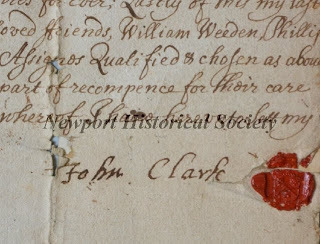 for ever; Lastly of this my last
loved ffriends, William Weeden, Phillip
Assignes Qualified & chosen as abou
part of recompence for their care
whereof I have hereunto set my
Newport Historical Society
John Clark